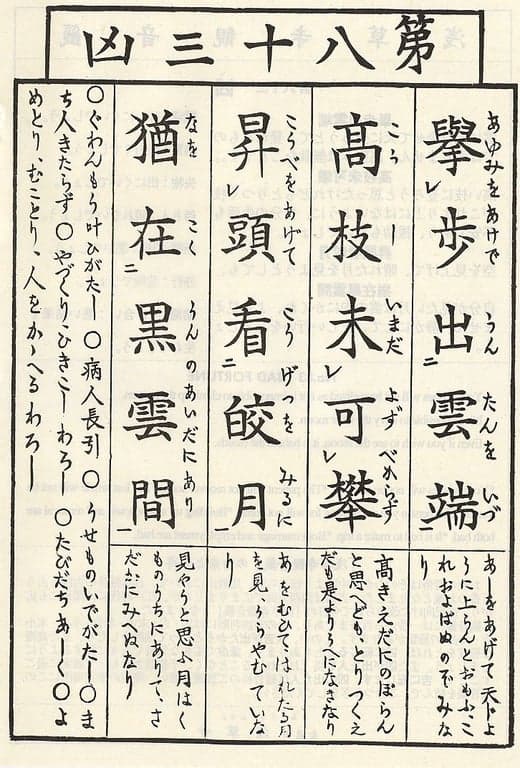 第八十三凶
擧歩出雲端
あゆみをあげて うんたんを いづ
あしをあげて天上よ
うに上らんとおもふ、こ
れおよばぬのぞみな
り
高枝未可攀
こうし いまだ よづべからず
高きえだにのぼらん
と思へども、とりつくえ
だも是よりうへになきなり
昇頭看皎月
こうべをあげて こうげつを みるに
あをむひて、はれたる月
を見、うらやむていな
り
猶在黒雲間
なを こくうんのあいだにあり
見やうと思ふ月はく
ものうちにありて、さ
だかにみへぬなり
○ぐわんもう叶ひがたし ○病人長引 ○うせものいでがたし ○ま
ち人きたらず ○やづくり、ひきこしわろし ○たびだちあし ○よ
めとり、むことり、人をかゝへるわろし